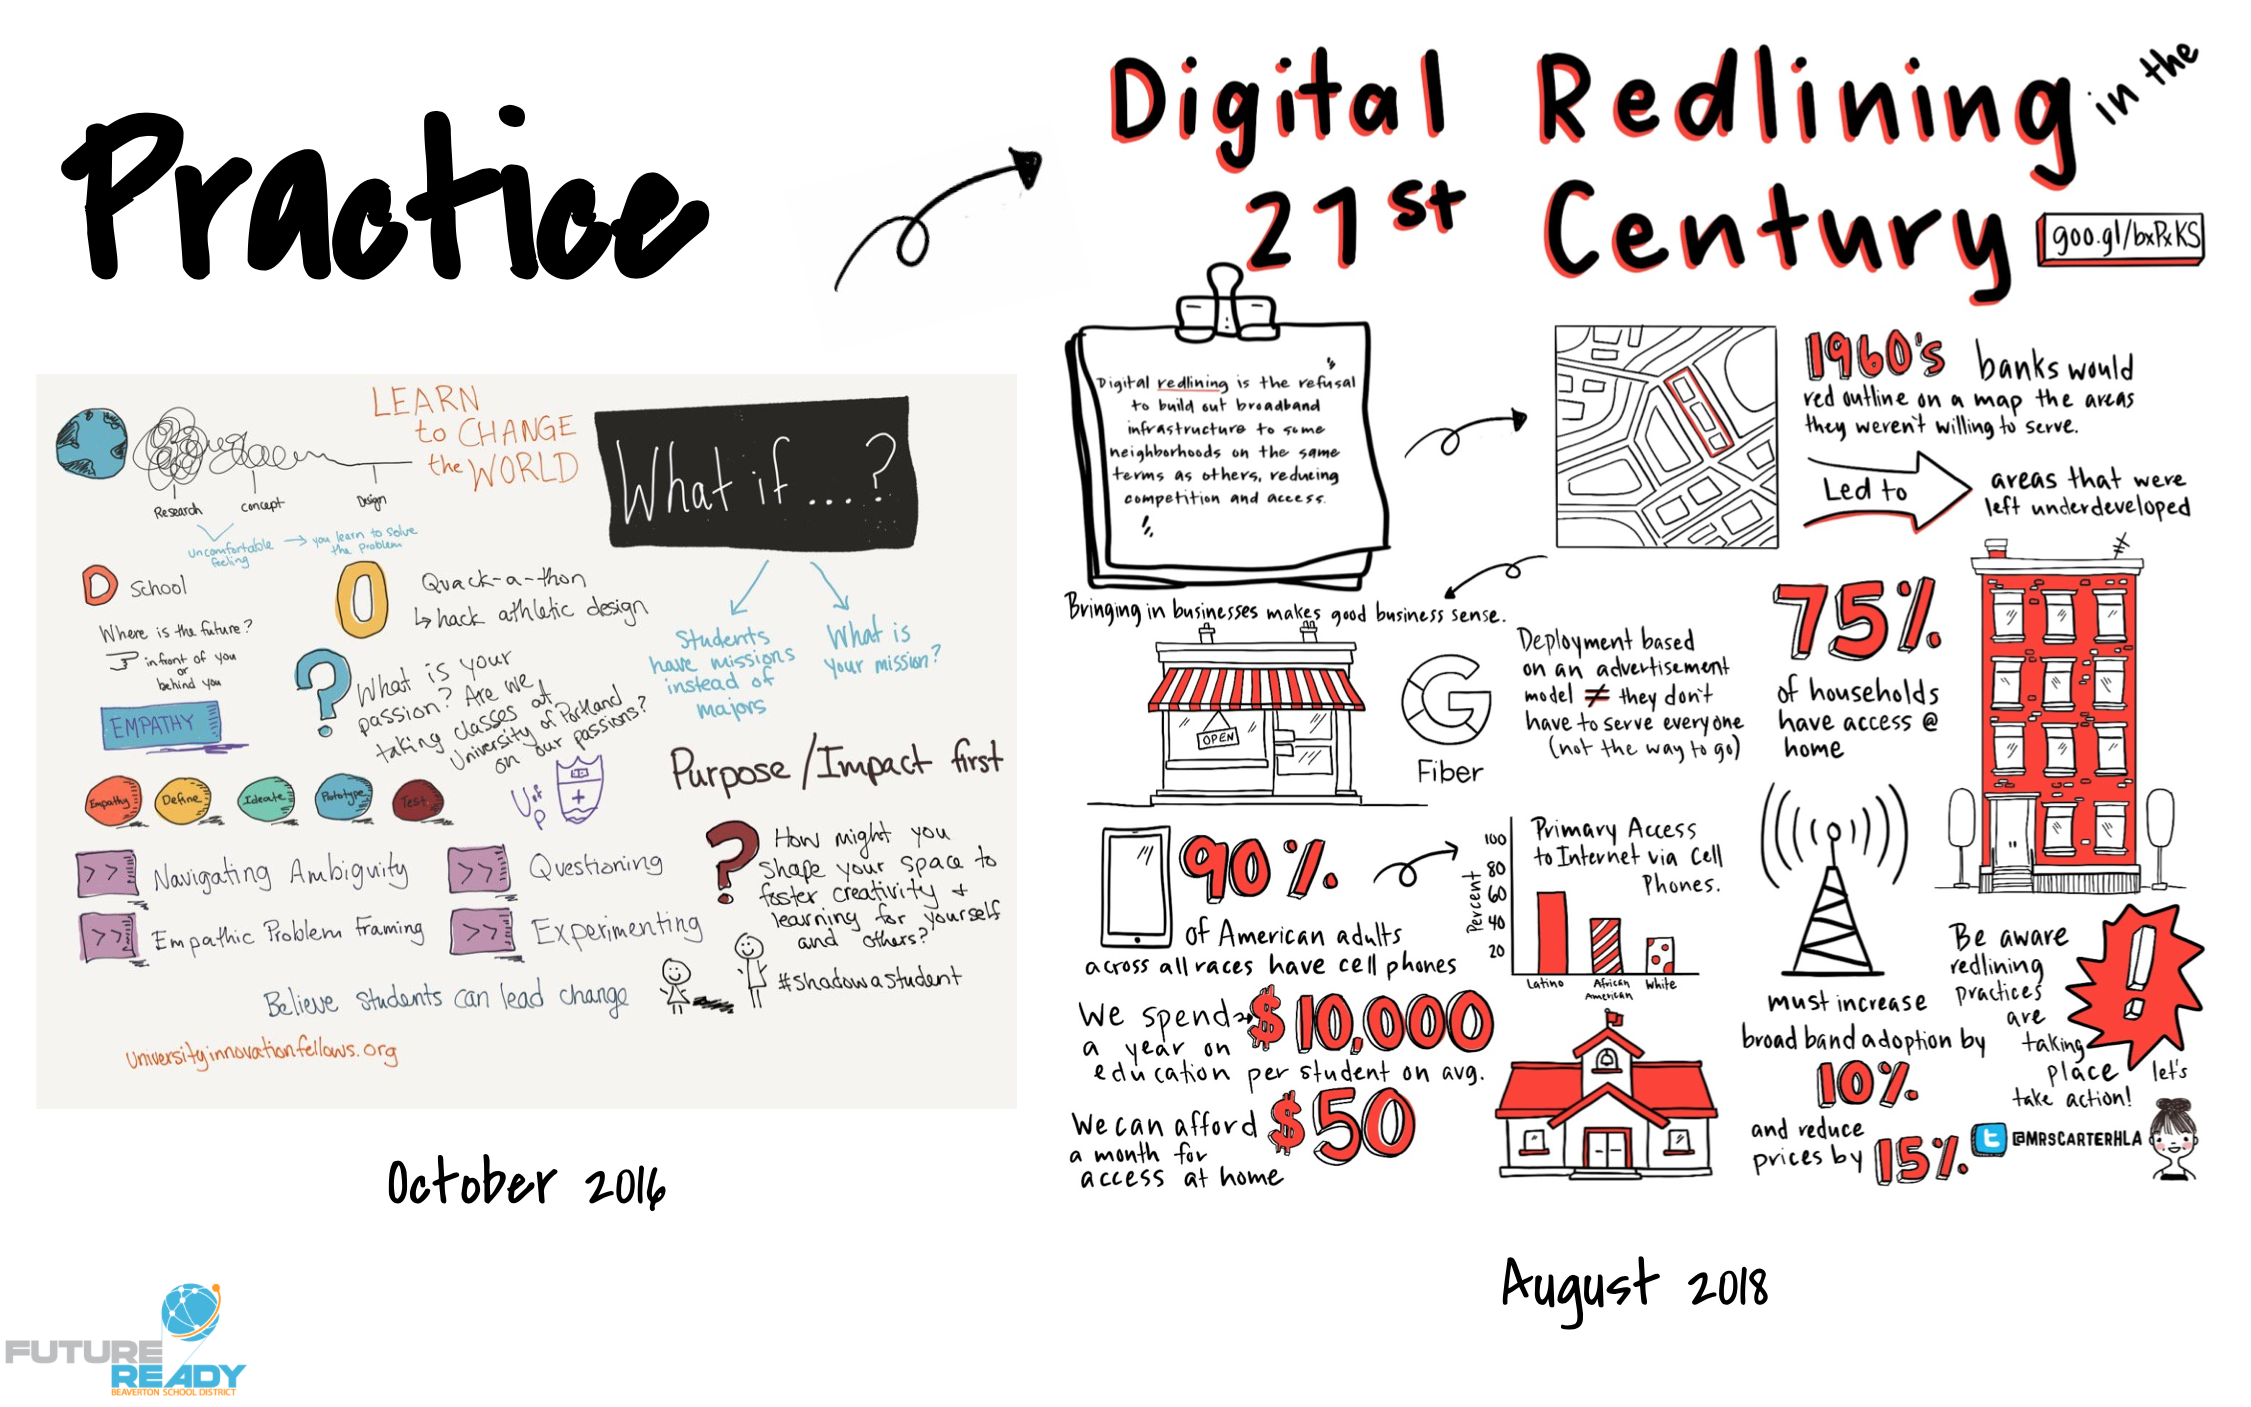 Practice
LEARN
to CHANGE
the WORLD
Research
concept
Design
uncomfortable
feeling
you learn to solve
the problem
What if ... ?
Students
have missions
instead of
majors
What is
your mission?
D School
Where is the future?
infront of you
or
behind you
EMPATHY
O
Quack-a-thon
hack athletic design
?
What is your
passion? Are we
taking classes at
University of Portland
on our passions?
Purpose/Impact first
Empathy
Define
Ideate
Prototype
Test
U of P
>> Navigating Ambiguity
>> Questioning
>> Empathic Problem Framing
>> Experimenting
?
How might you
shape your space to
foster creativity +
learning for yourself
and others?
#shadowastudent
Believe students can lead change
universityinnovationfellows.org
October 2016
FUTURE
READY
BEAVERTON SCHOOL DISTRICT
Digital Redlining in the
21st Century
goo.gl/bxPxKS
Digital redlining is the refusal
to build out broadband
infrastructure to some
neighborhoods on the same
terms as others, reducing
competition and access.
1960's banks would
red outline on a map the areas
they weren't willing to serve.
Led to
areas that were
left underdeveloped
Bringing in businesses makes good business sense.
OPEN
G
Fiber
Deployment based
on an advertisement
model ≠ they don't
have to serve everyone
(not the way to go)
75%
of households
have access @
home
90%
of American adults
across all races have cell phones
Primary Access
to Internet via Cell
Phones.
Percent
100
80
60
40
20
Latino
African
American
White
We spend $10,000
a year on
education per student on avg.
We can afford $50
a month for
access at home
must increase
broad band adoption by
10%
and reduce
prices by 15%
Be aware
redlining
practices
are
taking
place
let's
take action!
!
@MRSCARTERHLA
August 2018